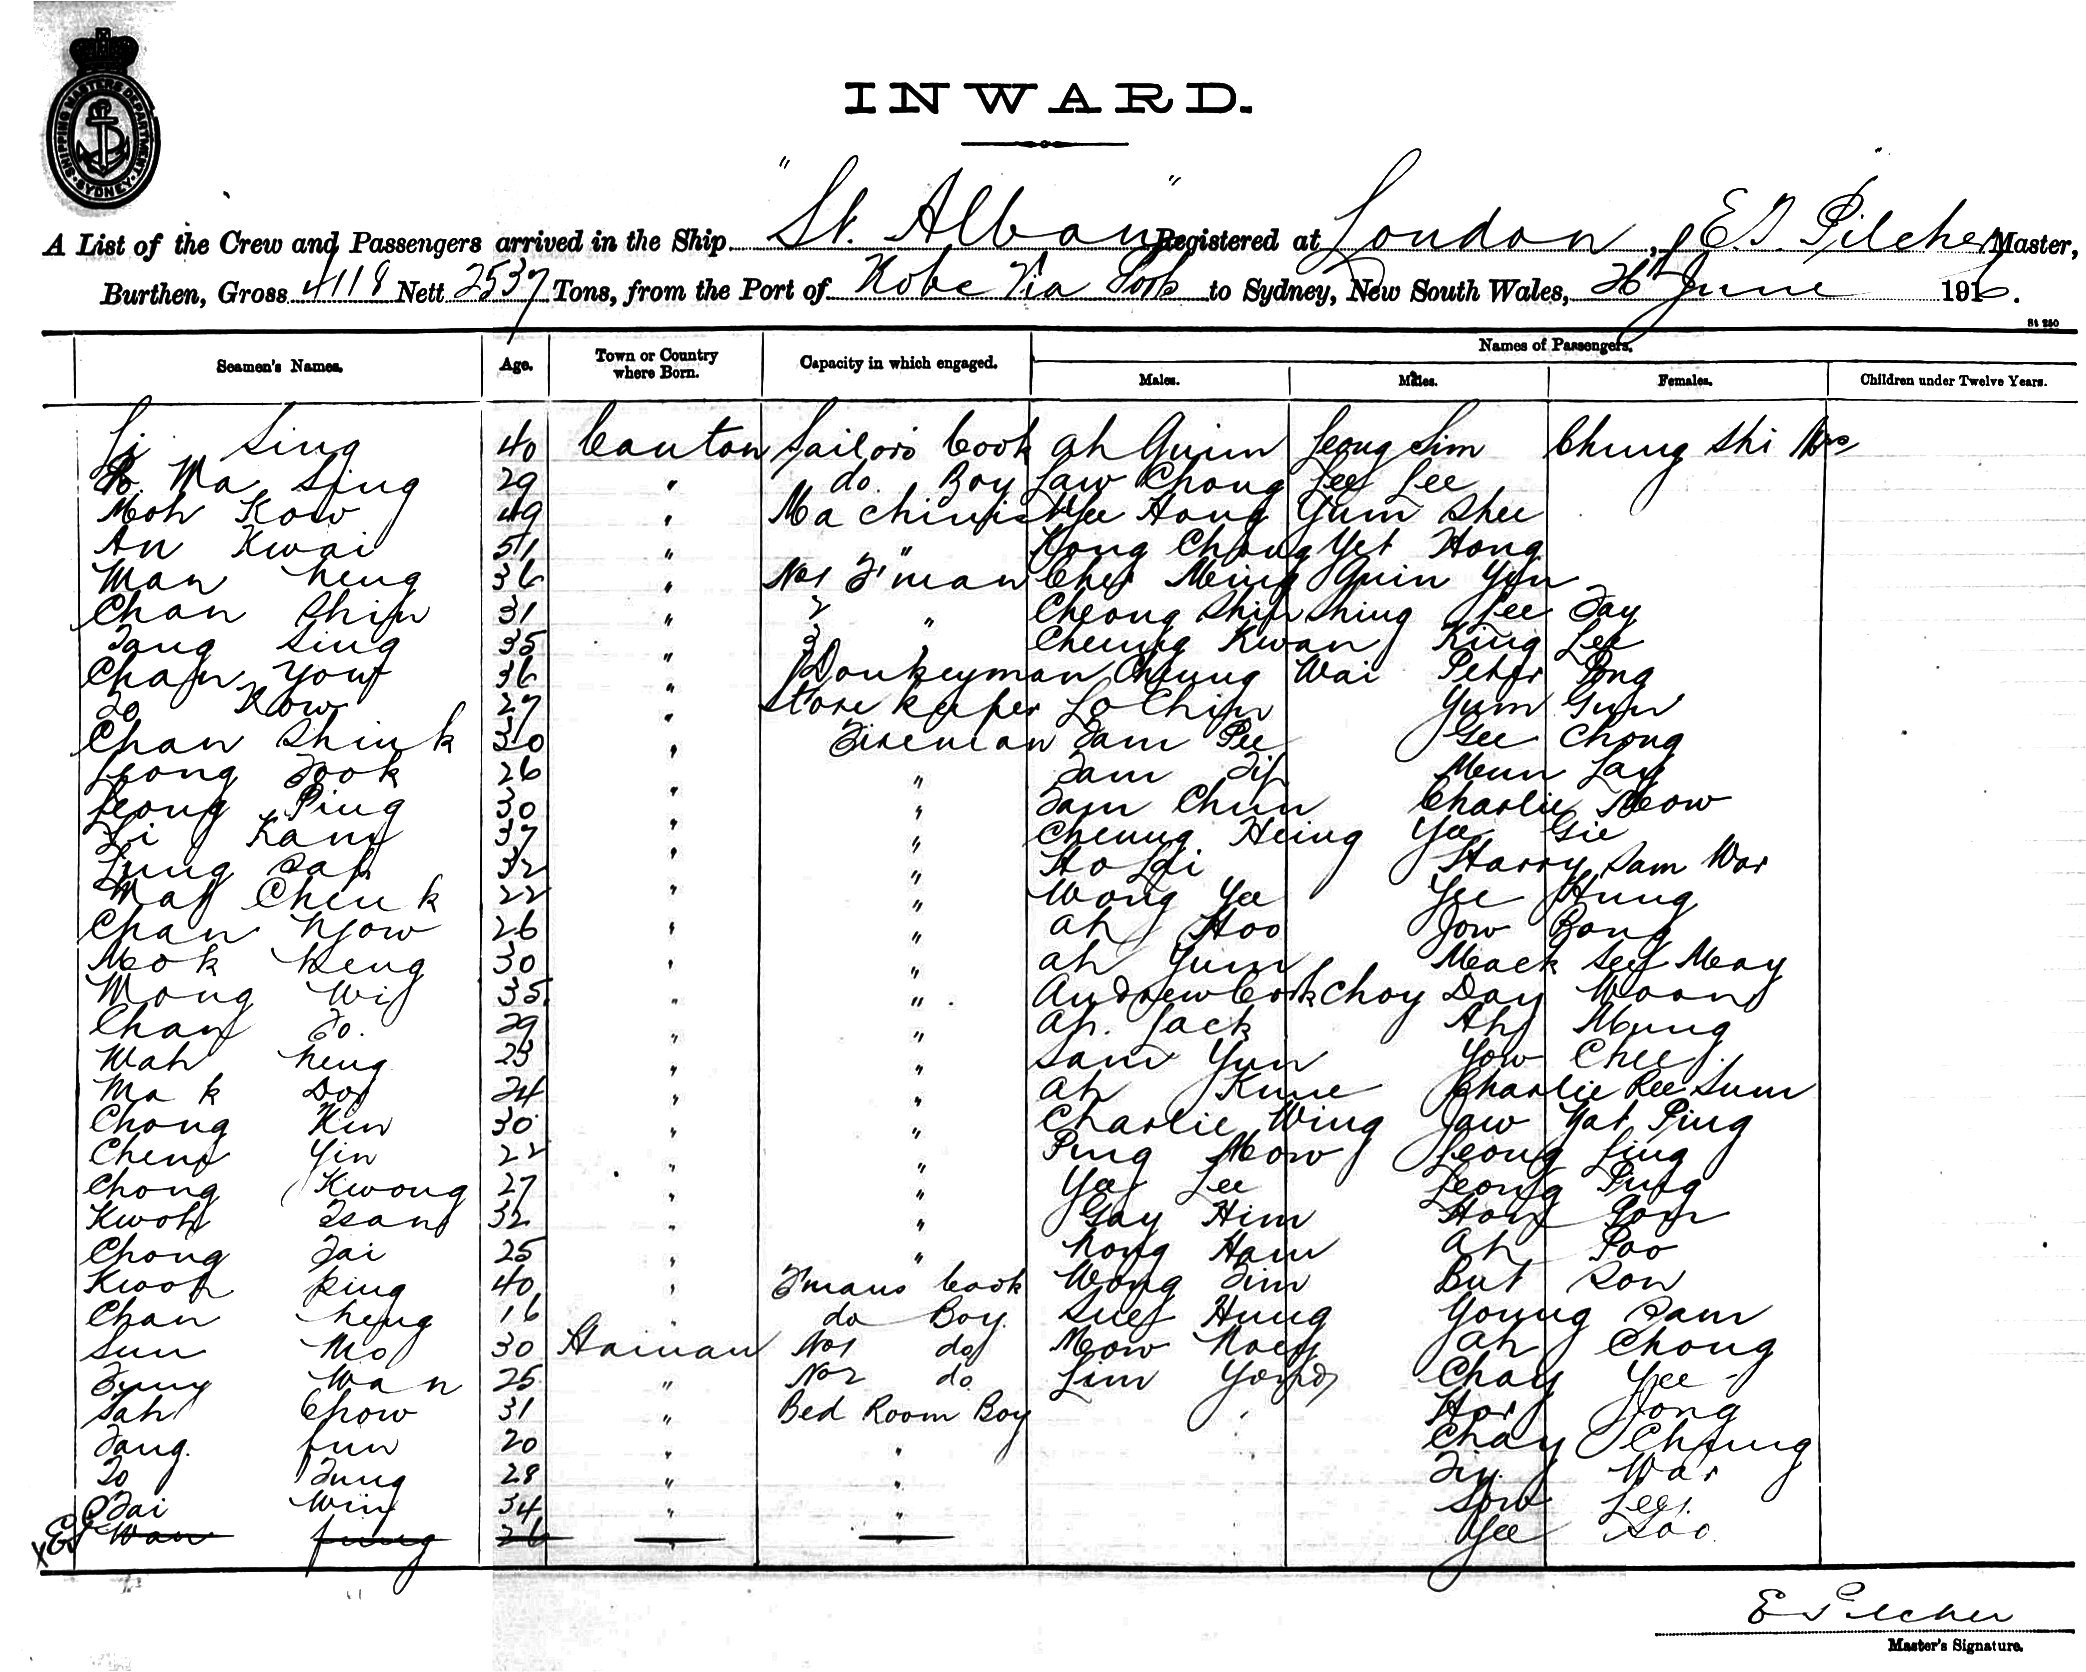 SHIPPING MASTERS DEPARTMENT · SYDNEY ·
INWARD.
A List of the Crew and Passengers arrived in the Ship "St. Albans" Registered at London, E.T. Pilcher Master,
Burthen, Gross 4118 Nett 2537 Tons, from the Port of Kobe Via Ports to Sydney, New South Wales, 26th June 1916.
St 250
Seamen's Names. Age. Town or Country where Born. Capacity in which engaged. Names of Passengers.
Males. Males. Females. Children under Twelve Years.
Li Sing 40 Canton Sailors Cook Ah Quim Leong Sim Chung Shi Mrs
Ma Sing 29 " do. Boy Law Chong Lee Lee
Moh Kow 49 " Machinist Yee Hong Yum Shee
An Kwai 51 " " Kong Chong Yet Hong
Man Neng 36 " No1 F'man Chee Ming Quin Yin
Chan Shin 31 " 2 " Cheong Shin Shing Lee Fay
Fang Sing 35 " 3 " Cheung Kwan King Lee
Chan Youf 36 " Donkeyman Cheung Wai Peter Pong
To Kow 27 " Store Keeper Lo Chin Yum Gun
Chan Shink 30 " Fireman Tam Pee Gee Chong
Leong Fook 26 " " Tam Tip Mun Lay
Leong Ping 30 " " Tam Chun Charlie Meow
Li Kam 37 " " Cheung Hing Yee Gie
Lung Sah 32 " " Ho Loi Harry Sam War
Mak Cheuk 22 " " Wong Yee Yee Hung
Chan Ngow 26 " " Ah Hoo Jow Bong
Mok Neng 30 " " Ah Yum Mack See May
Wong Wi 35 " " Andrew Cork Choy Day Woon
Chan To. 29 " " Ah. Jack Ah Mung
Wah Neng 23 " " Sam Yun Yow Chee
Mak Doi 24 " " Ah Kune Charlie Lee Sum
Chong Kin 30 " " Charlie Wing Jaw Yat Ping
Cheng Yin 22 " " Ping Meow Leong Ling
Chong Kwong 27 " " Yee Lee Leong Ping
Kwoh Tsang 32 " " Gay Him Hong Gon
Chong Tai 25 " " Nong Ham Ah Poo
Kwoh King 40 " F'mans Cook Wong Tim But Son
Chan Neng 16 " do Boy. Sue Hung Young Sam
Sun Mo 30 Hainan No1 do Meow Noey Ah Chong
Fung Wan 25 " No2 do Lim Young Chay Yee
Sah Chow 31 " Bed Room Boy Hor Fong
Fang. Fun 20 " " Chay Chung
To Fung 28 " " Tiy War
Tai Win 34 " " Sow Lee
Wan Fung 26 " Yee Soo
E Pilcher
Master's Signature.